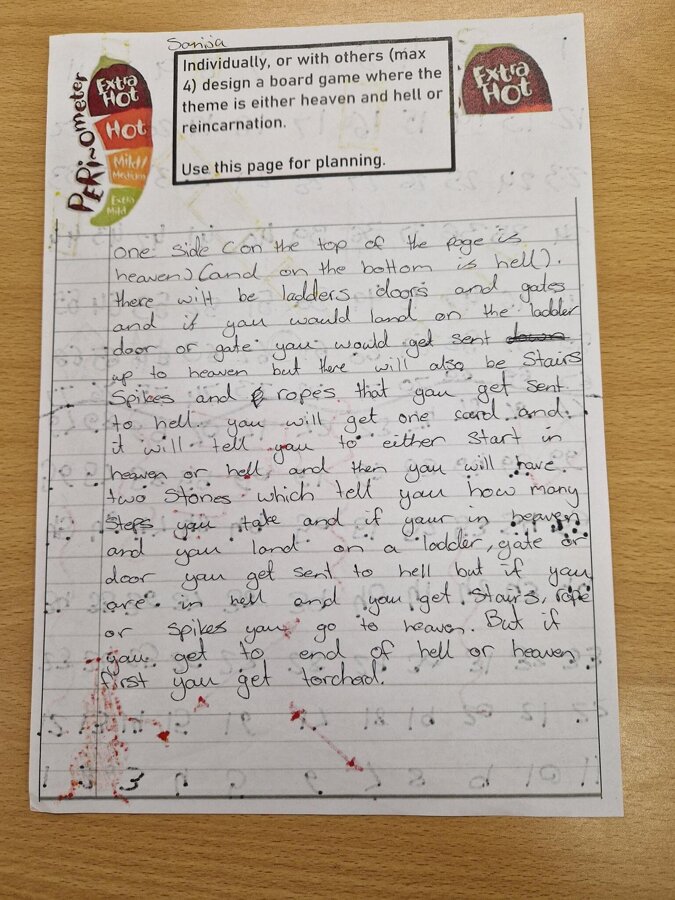 Sonija
PERi-ometer
Extra
Hot
Hot
Mild/
Medium
Extra
Mild
Individually, or with others (max
4) design a board game where the
theme is either heaven and hell or
reincarnation.
Use this page for planning.
Extra
Hot
one side (on the top of the page is
heaven) (and on the bottom is hell).
there will be ladders doors and gates
and if you would land on the ladder
door or gate you would get sent down
up to heaven but there will also be Stairs
Spikes and ropes that you get sent
to hell. you will get one card and
it will tell you to either start in
heaven or hell, and then you will have
two Stones which tell you how many
steps you take and if your in heaven
and you land on a ladder, gate or
door you get sent to hell but if you
are in hell and you get stairs, rope
or spikes you go to heaven. But if
you get to end of hell or heaven
first you get torched.
3